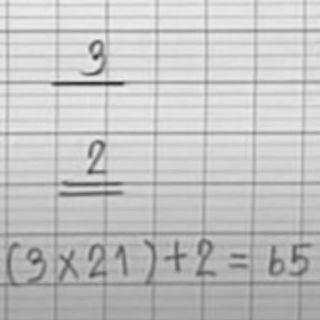 3
2
(3×21)+2 = 65